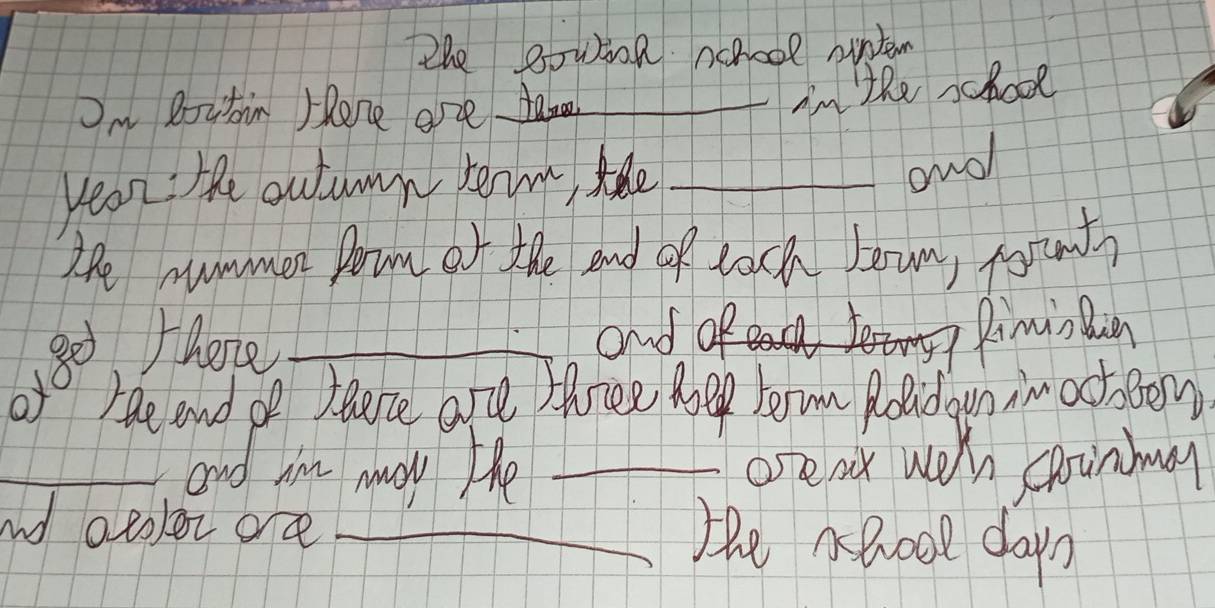 The british school system
In britain there are three ______ in the school
year: the autumn term, the ______ and
the summer term at the end of each term,
get there ______ and of each term, finishies
at the end of there are three half term holidays in october,
______ and in may the ______ are six weks christmas
nd easter are ______ the school days